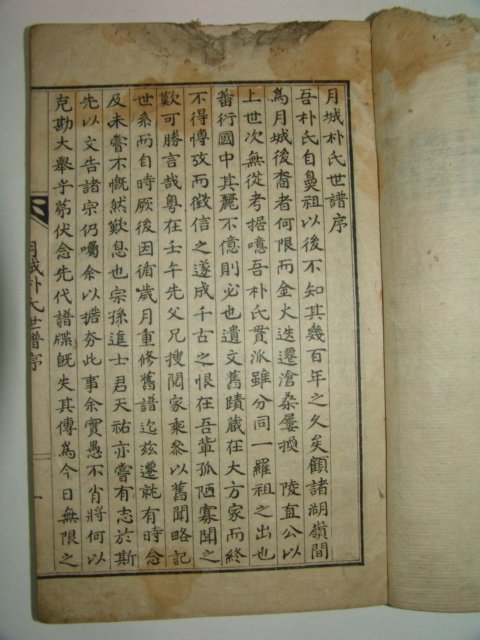 月城朴氏世譜序
吾朴氏自鼻祖以後不知其幾百年之久矣顧諸湖嶺間
爲月城後裔者何限而金大迭遷滄桑屢換 陵直公以
上世次無從考据噫吾朴氏貫派雖分同一羅祖之出也
蕃衍國中其麗不億則必也遺文舊蹟蔵在大方家而終
不得博攷而徵信之遂成千古之恨在吾輩孤陋寡聞之
歎可勝言哉粤在壬午先父兄搜閱家乘叅以舊聞略記
世系而自時厥後因循歲月重修舊譜迄玆遷就有時念
及未嘗不慨然歎息也宗孫進士君天祐亦嘗有志於斯
先以文告諸宗仍囑余以擔夯此事余實愚不肖將何以
克勘大舉乎第伏念先代譜牒旣失其傳爲今日無限之
月城朴氏世譜序
一